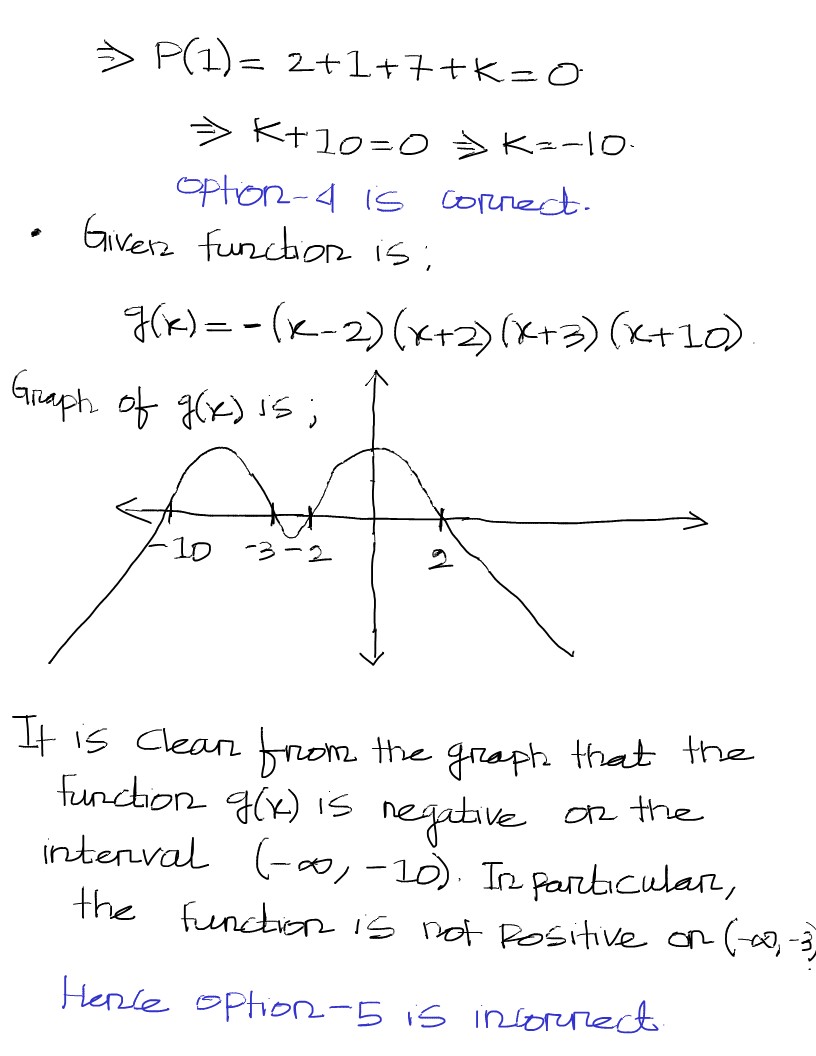 ⇒ P(1) = 2+1+7+K=0
⇒ K+10=0 ⇒ K=-10.
option-4 is correct.
• Given function is;
g(x) = -(x-2)(x+2)(x+3)(x+10).
Graph of g(x) is;
-10 -3 -2 2
It is clear from the graph that the
function g(x) is negative on the
interval (-∞, -10). In particular,
the function is not positive on (-∞, -3)
Hence option-5 is incorrect.